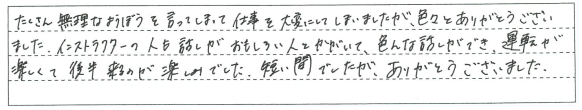 たくさん無理なようぼうを言ってしまって仕事を大変にしてしまいましたが、色々とありがとうござい
ました。インストラクターの人も話しがおもしろい人とかがいて、色んな話しができ、運転が
楽しくて後半来るのが楽しみでした。短い間でしたが、ありがとうございました。